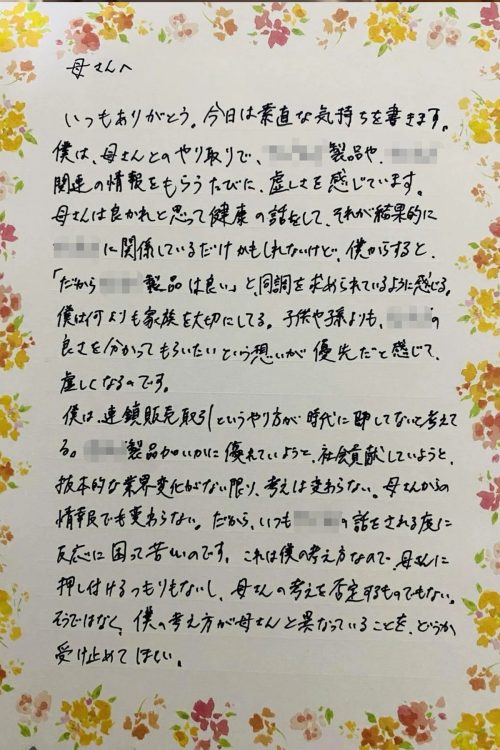 母さんへ
いつもありがとう。今日は素直な気持ちを書きます。
僕は、母さんとのやり取りで、製品や、
関連の情報をもらうたびに、虚しさを感じています。
母さんは良かれと思って健康の話をして、それが結果的に
に関係しているだけかもしれないけど、僕からすると、
「だから製品は良い」と、同調を求められているように感じる。
僕は何よりも家族を大切にしてる。子供や孫よりも、の
良さを分かってもらいたいという想いが優先だと感じて、
虚しくなるのです。
僕は、連鎖販売取引というやり方が時代に即してないと考えて
る。製品がいかに優れていようと、社会貢献していようと、
抜本的な業界変化がない限り、考えは変わらない。母さんからの
情報でも変わらない。だから、いつもの話をされる度に
反応に困って苦しいのです。これは僕の考え方なので、母さんに
押し付けるつもりもないし、母さんの考えを否定するものでもない。
そうではなく、僕の考え方が母さんと異なっていることを、どうか
受け止めてほしい。